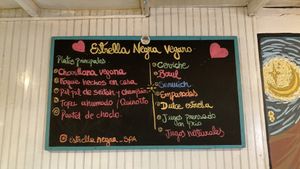 Estrella Negra Vegano
Platos Principales
Chorrillana vegana
hechos en casa
Pil pil de seitan y champiñon
Tofu ahumado / Quinotto
Pastel de choclo.
Estrella negra - SPA
Ceviche
Bowl
Sanwich
Empanadas
Dulce estrella
Jugos prensado
en frio
Jugos naturales